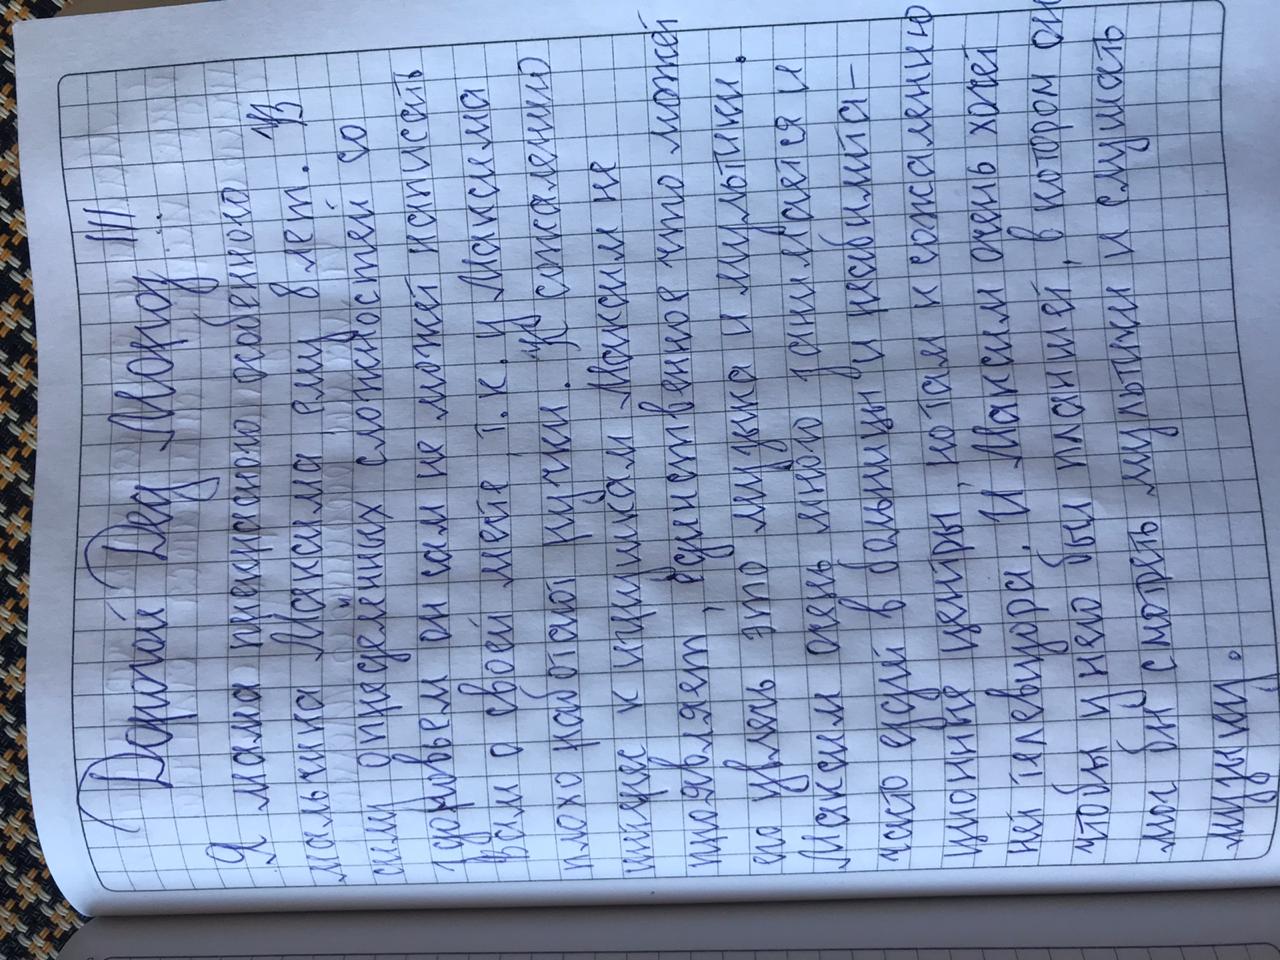 Дорогой Дед Мороз !!!
Я мама прекрасного особенного
мальчика Максима, ему 8 лет. Из
силу определенных сложностей со
здоровьем он сам не может написать
Вам о своей мечте, т.к. у Максима
плохо работают ручки. К сожалению
интерес к игрушкам Максим не
проявляет, единственное что может
его увлечь это музыка и мультики.
Максим очень много занимается и
часто ездит в больницы и реабилита-
ционные центры, но там к сожалению
нет телевизора. И Максим очень хотел
чтобы у него был планшет, в котором он
мог бы смотреть мультики и слушать
музыку.